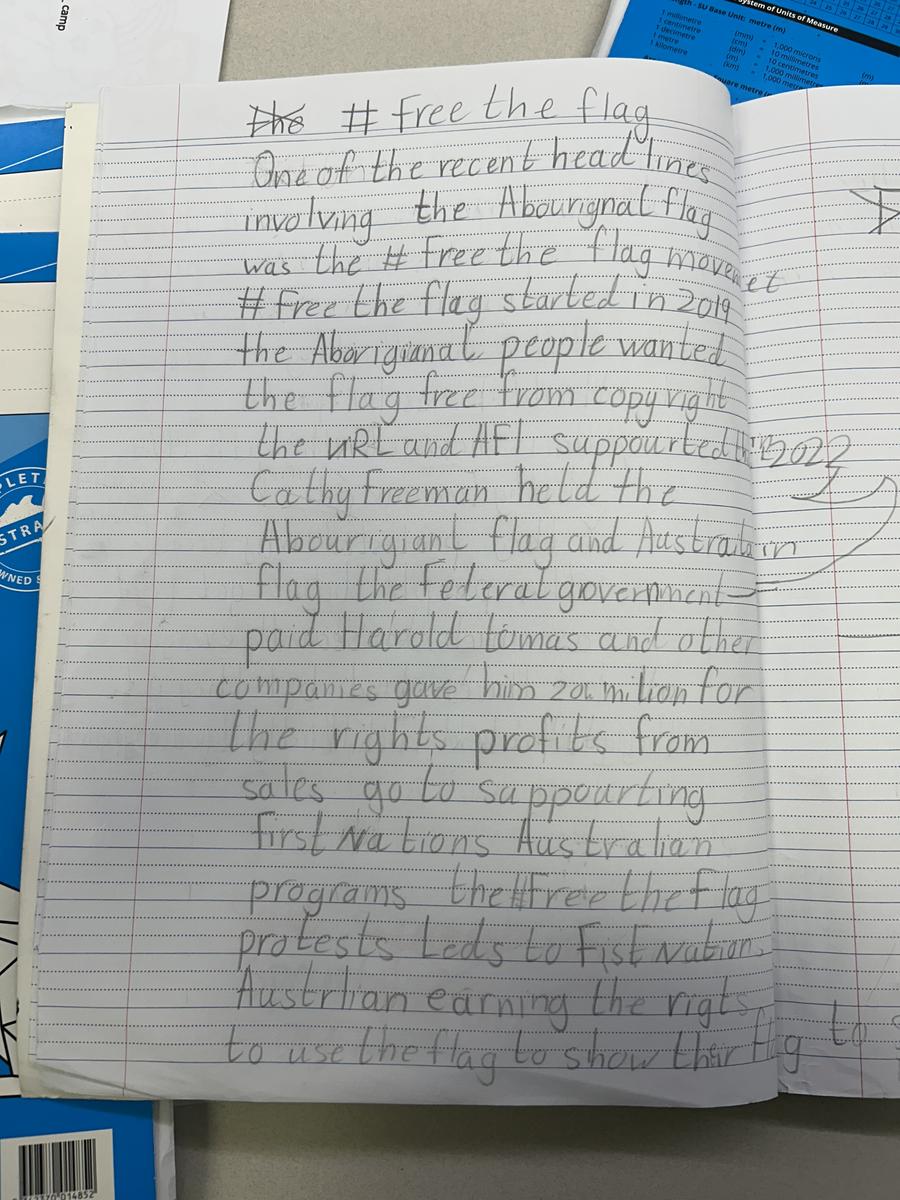 camp
System of Units of Measure
ength - SU Base Unit: metre (m)
1 millimetre (mm) = 1,000 microns
1 centimetre (cm) = 10 millimetres
1 decimetre (dm) = 10 centimetres
1 metre (m) = 1,000 millimetres
1 kilometre (km) = 1,000 metre
quare metre (m
The # Free the flag
One of the recent head lines
involving the Abourignal flag
was the # free the flag movemet
# free the flag started in 2019
the Aborigianal people wanted
the flag free from copyright
the NRL and AFL suppourted 2022
Cathy freeman held the
Abourigianl flag and Australain
flag the Federal government
paid Harold tomas and other
companies gave him 20. milion for
the rights profits from
sales go to suppourting
first Nations Australian
programs the #free the Flag
protests Leds to Fist Nation
Austrlian earning the rigts
to use the flag to show their flag to
PLET
STRA
WNED